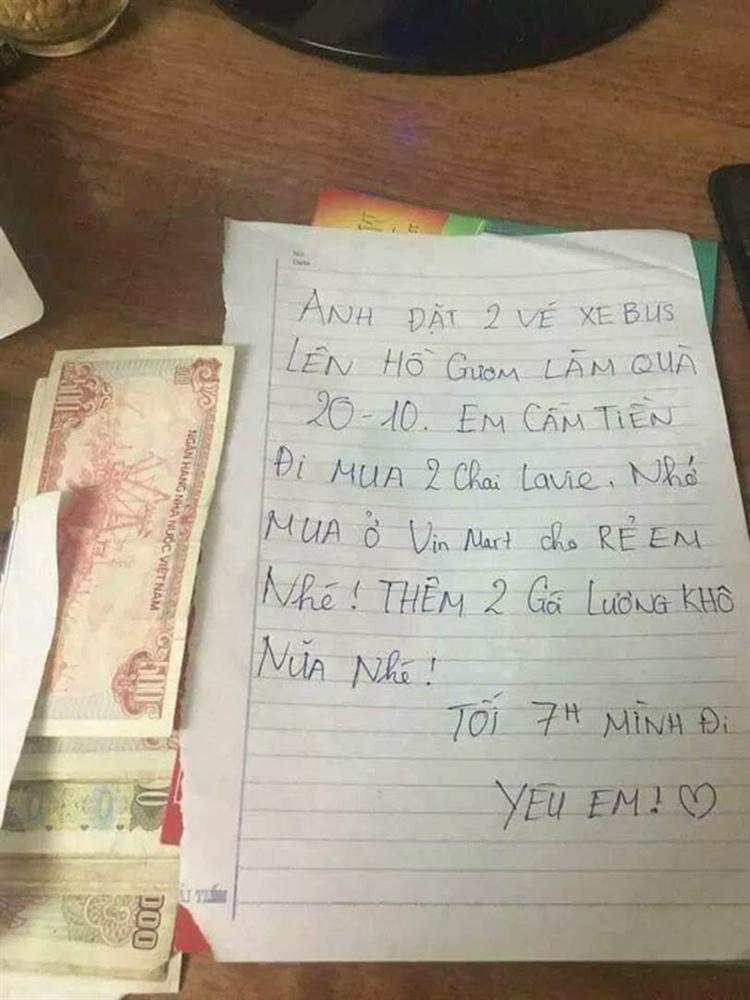 No:
Date:
ANH ĐẶT 2 VÉ XE BUS
LÊN HỒ GƯƠM LÀM QUÀ
20-10. EM CẦM TIỀN
Đi MUA 2 Chai Lavie. Nhớ
MUA Ở Vin Mart cho RẺ EM
Nhé! THÊM 2 Gói LƯƠNG KHÔ
NỮA Nhé!
TỐI 7H MÌNH Đi
YÊU EM! ♡
NGÂN HÀNG NHÀ NƯỚC VIỆT NAM
500
500
000